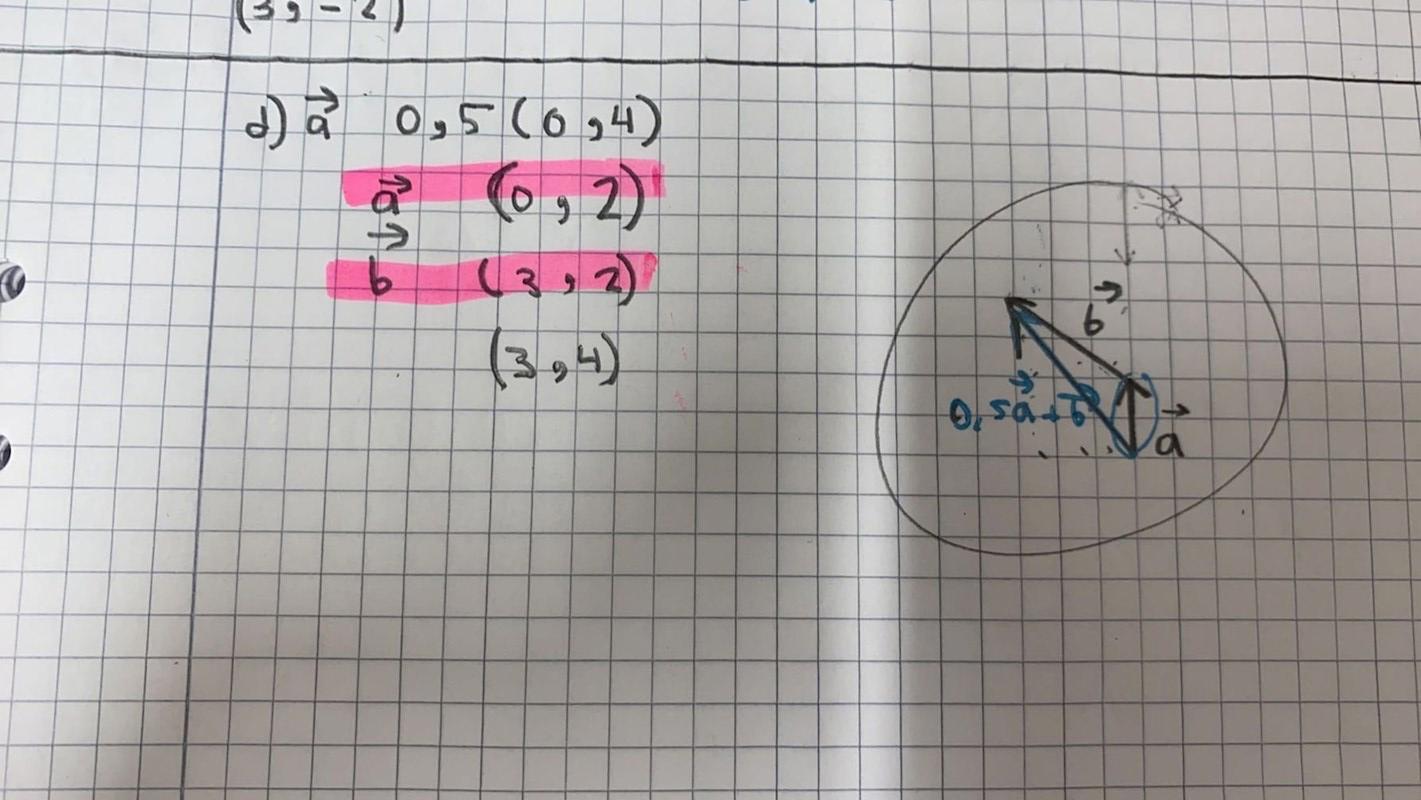 (3, -2)
d) a⃗ 0,5 (0,4)
a⃗ (0, 2)
b⃗ (3, 2)
(3,4)
b⃗
0,5a⃗+b⃗
a⃗